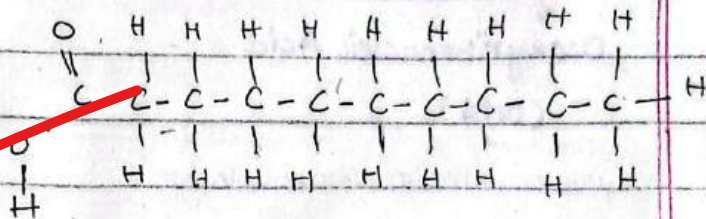 O H H H H H H H H H
C C - C - C - C - C - C - C - C - C - H
O
H H H H H H H H H
H